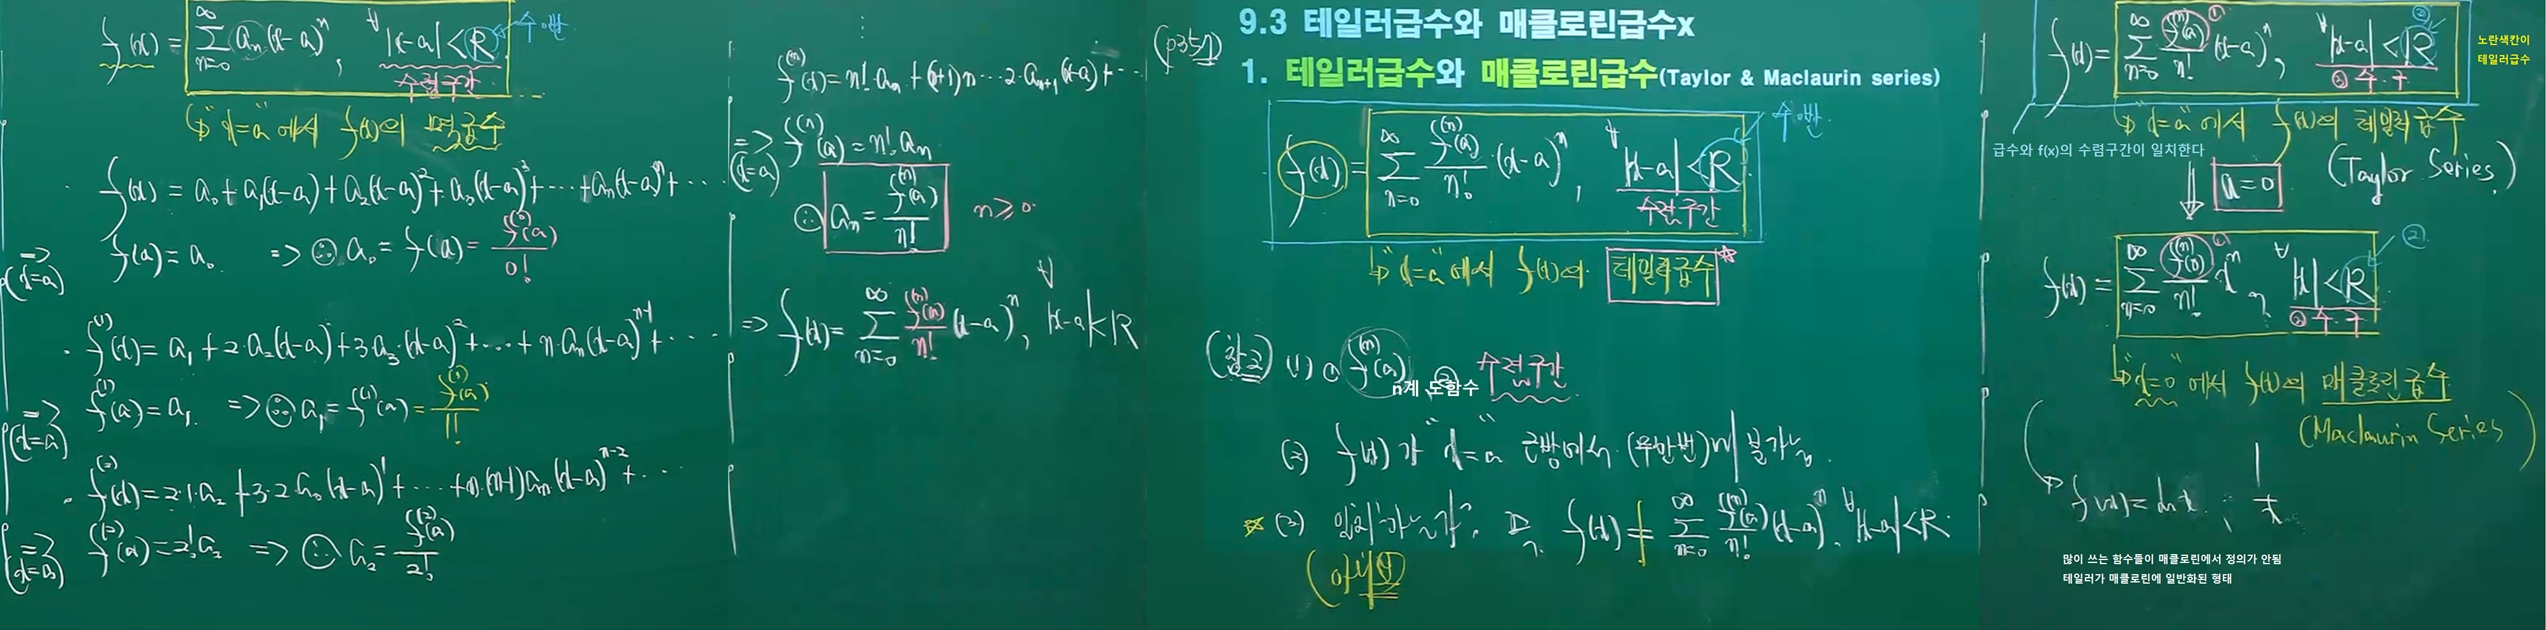 f(x) = ∑_{n=0}^{∞} a_n (x-a)^n , ∀|x-a| < R 수.반
수렴구간
"x=a"에서 f(x)의 멱급수
f(x) = a_0 + a_1(x-a) + a_2(x-a)^2 + a_3(x-a)^3 + ⋯ + a_n(x-a)^n + ⋯
=> (x=a) f(a) = a_0 => ∴ a_0 = f(a) = f^{(0)}(a)/0!
f^{(1)}(x) = a_1 + 2·a_2(x-a) + 3·a_3·(x-a)^2 + ⋯ + n·a_n(x-a)^{n-1} + ⋯
=> (x=a) f^{(1)}(a) = a_1 => ∴ a_1 = f^{(1)}(a) = f^{(1)}(a)/1!
f^{(2)}(x) = 2·1·a_2 + 3·2·a_3(x-a)^1 + ⋯ + n·(n-1)a_n·(x-a)^{n-2} + ⋯
=> (x=a) f^{(2)}(a) = 2!a_2 => ∴ a_2 = f^{(2)}(a)/2!
⋮
f^{(n)}(x) = n!·a_n + (n+1)n⋯2·a_{n+1}(x-a) + ⋯
=> (x=a) f^{(n)}(a) = n!a_n
∴ a_n = f^{(n)}(a)/n! n≥0
=> f(x) = ∑_{n=0}^{∞} f^{(n)}(a)/n! (x-a)^n , ∀|x-a| < R
(p357)
9.3 테일러급수와 매클로린급수x
1. 테일러급수와 매클로린급수(Taylor & Maclaurin series)
f(x) = ∑_{n=0}^{∞} f^{(n)}(a)/n! ·(x-a)^n , ∀|x-a| < R 수.반
수렴구간
"x=a"에서 f(x)의 테일러급수
(참고) (1) ① f^{(n)}(a) ② 수렴구간
n계 도함수
(2) f(x)가 "x=a" 근방에서 (무한번)
(3) f(x) ≠ ∑_{n=0}^{∞} f^{(n)}(a)/n! (x-a)^n , ∀|x-a| < R
f(x) = ∑_{n=0}^{∞} f^{(n)}(a)/n! ① (x-a)^n , ∀|x-a| < R ②
② 수.구
노란색칸이
테일러급수
"x=a"에서 f(x)의 테일러급수
급수와 f(x)의 수렴구간이 일치한다
(Taylor Series)
a=0
f(x) = ∑_{n=0}^{∞} f^{(n)}(0)/n! ① x^n , ∀|x| < R ②
② 수.구
"x=0"에서 f(x)의 매클로린급수
(Maclaurin Series)
f(x) = ln x , 1/x
많이 쓰는 함수들이 매클로린에서 정의가 안됨
테일러가 매클로린에 일반화된 형태